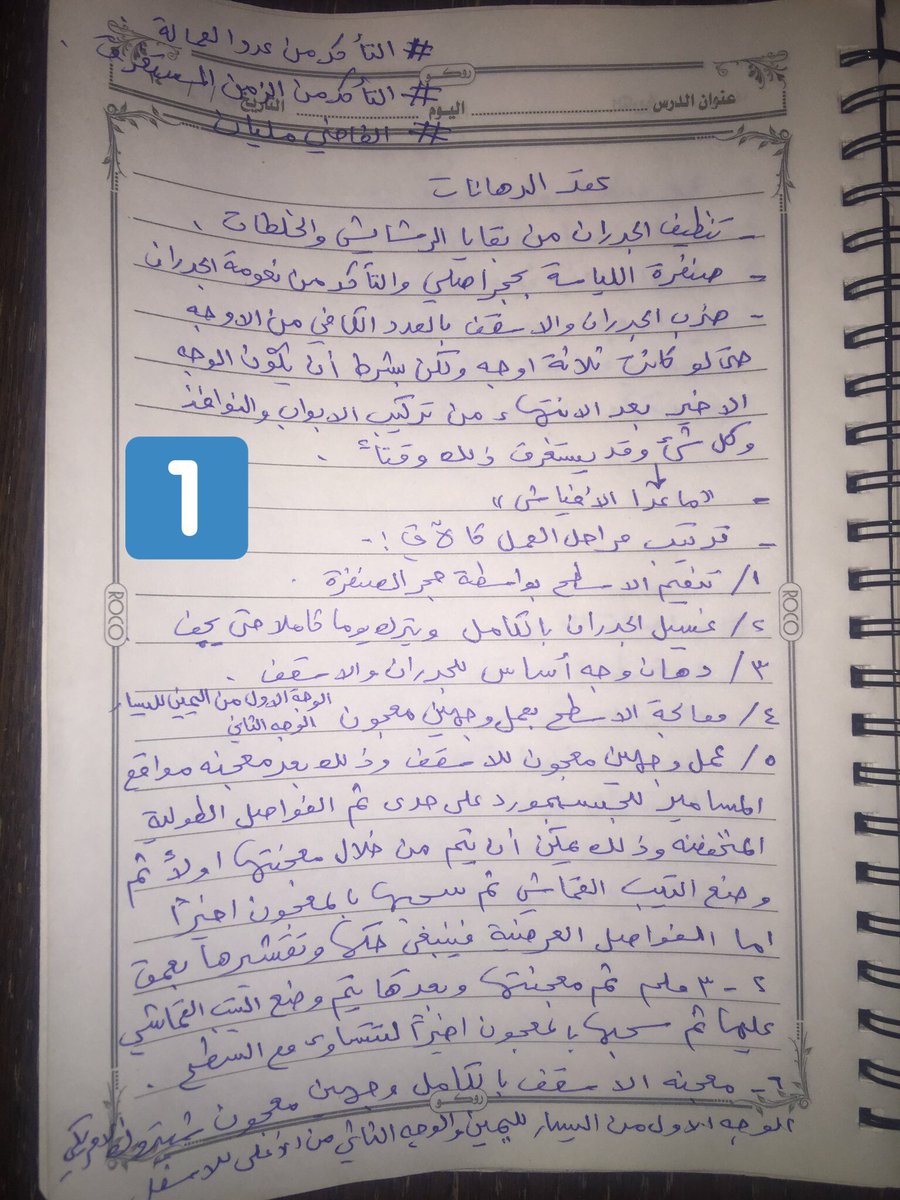 # التأكد من عدد العمالة
# التأكد من الزمن المستغرق
روكو
عنوان الدرس اليوم التاريخ
# القاضي مليان
عقد الدهانات
- تنظيف الجدران من بقايا الرشايش والخلطات .
- صنفرة اللياسة بحجر اصلي والتأكد من نعومة الجدران
- ضرب الجدران والاسقف بالعدد الكافي من الاوجه
حتى لو كانت ثلاثة اوجه ولكن بشرط أن يكون الوجه
الاخير بعد الانتهاء من تركيب الابواب والنوافذ
وكل شيء وقد يستغرق ذلك وقتاً .
- "ماعدا الافياش"
1
- ترتيب مراحل العمل كالآتي :-
١/ تنعيم الاسطح بواسطة حجر الصنفرة .
٢/ غسيل الجدران بالكامل ويترك يوما كاملا حتى يجف
ROCO ROCO
٣/ دهان وجه أساس للجدران والاسقف .
الوجه الاول من اليمين لليسار
٤/ معالجة الاسطح بعمل وجهين معجون الوجه الثاني
٥/ عمل وجهين معجون للاسقف وذلك بعد معجنه مواقع
المسامير للجبسمبورد على حدى ثم الفواصل الطولية
المنخفضه وذلك يمكن ان يتم من خلال معجنتها اولاً ثم
وضع التيب القماشي ثم سحبها بالمعجون اخيراً
اما الفواصل العرضية فينبغي حكها وتقشيرها بعمق
٢ - ٣ ملم ثم معجنتها وبعدها يتم وضع التيب القماشي
عليها ثم سحبها بالمعجون اخيراً لتتساوى مع السطح .
٦- معجنه الاسقف بالكامل وجهين معجون
روكو
الوجه الاول من اليسار لليمين والوجه الثاني من الاعلى للاسفل